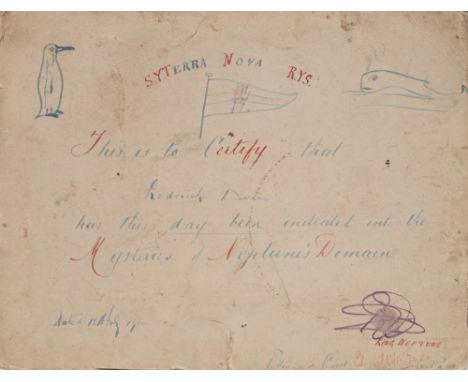 SY TERRA NOVA RYS.
This is to Certify that
Frederick
has this day been initiated into the
Mysteries of Neptune's Domain
Dated July
King Neptune
Court